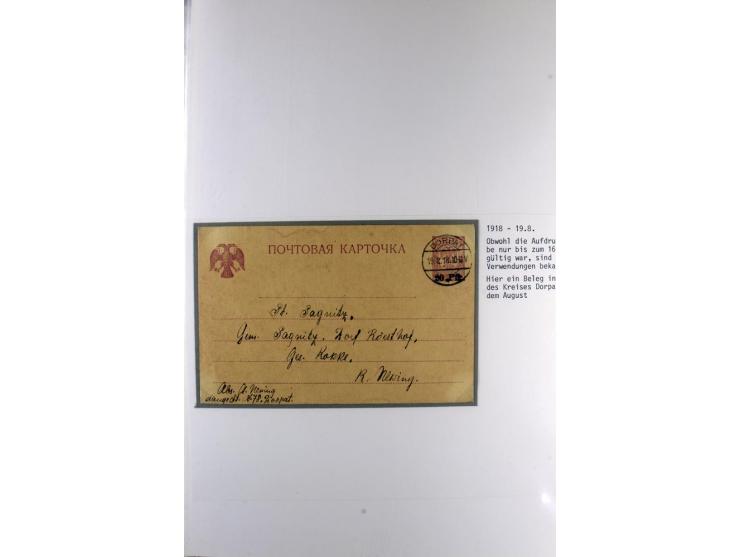 ПОЧТОВАЯ КАРТОЧКА
DORPAT
19.8.18.10-11V
20 Pfg.
St. Sagnitz.
Gem. Sagnitz. Dorf Röösthof,
Ges. Kokke.
R. Nening.
Abs.
Dorpat.
1918 - 19.8.
Obwohl die Aufdru
be nur bis zum 16
gültig war, sind
Verwendungen beka
Hier ein Beleg in
des Kreises Dorpa
dem August